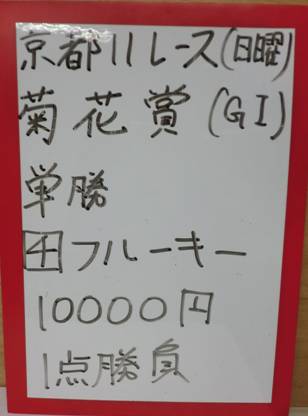 京都11レース(日曜)
菊花賞(GI)
単勝
4フルーキー
10000円
1点勝負